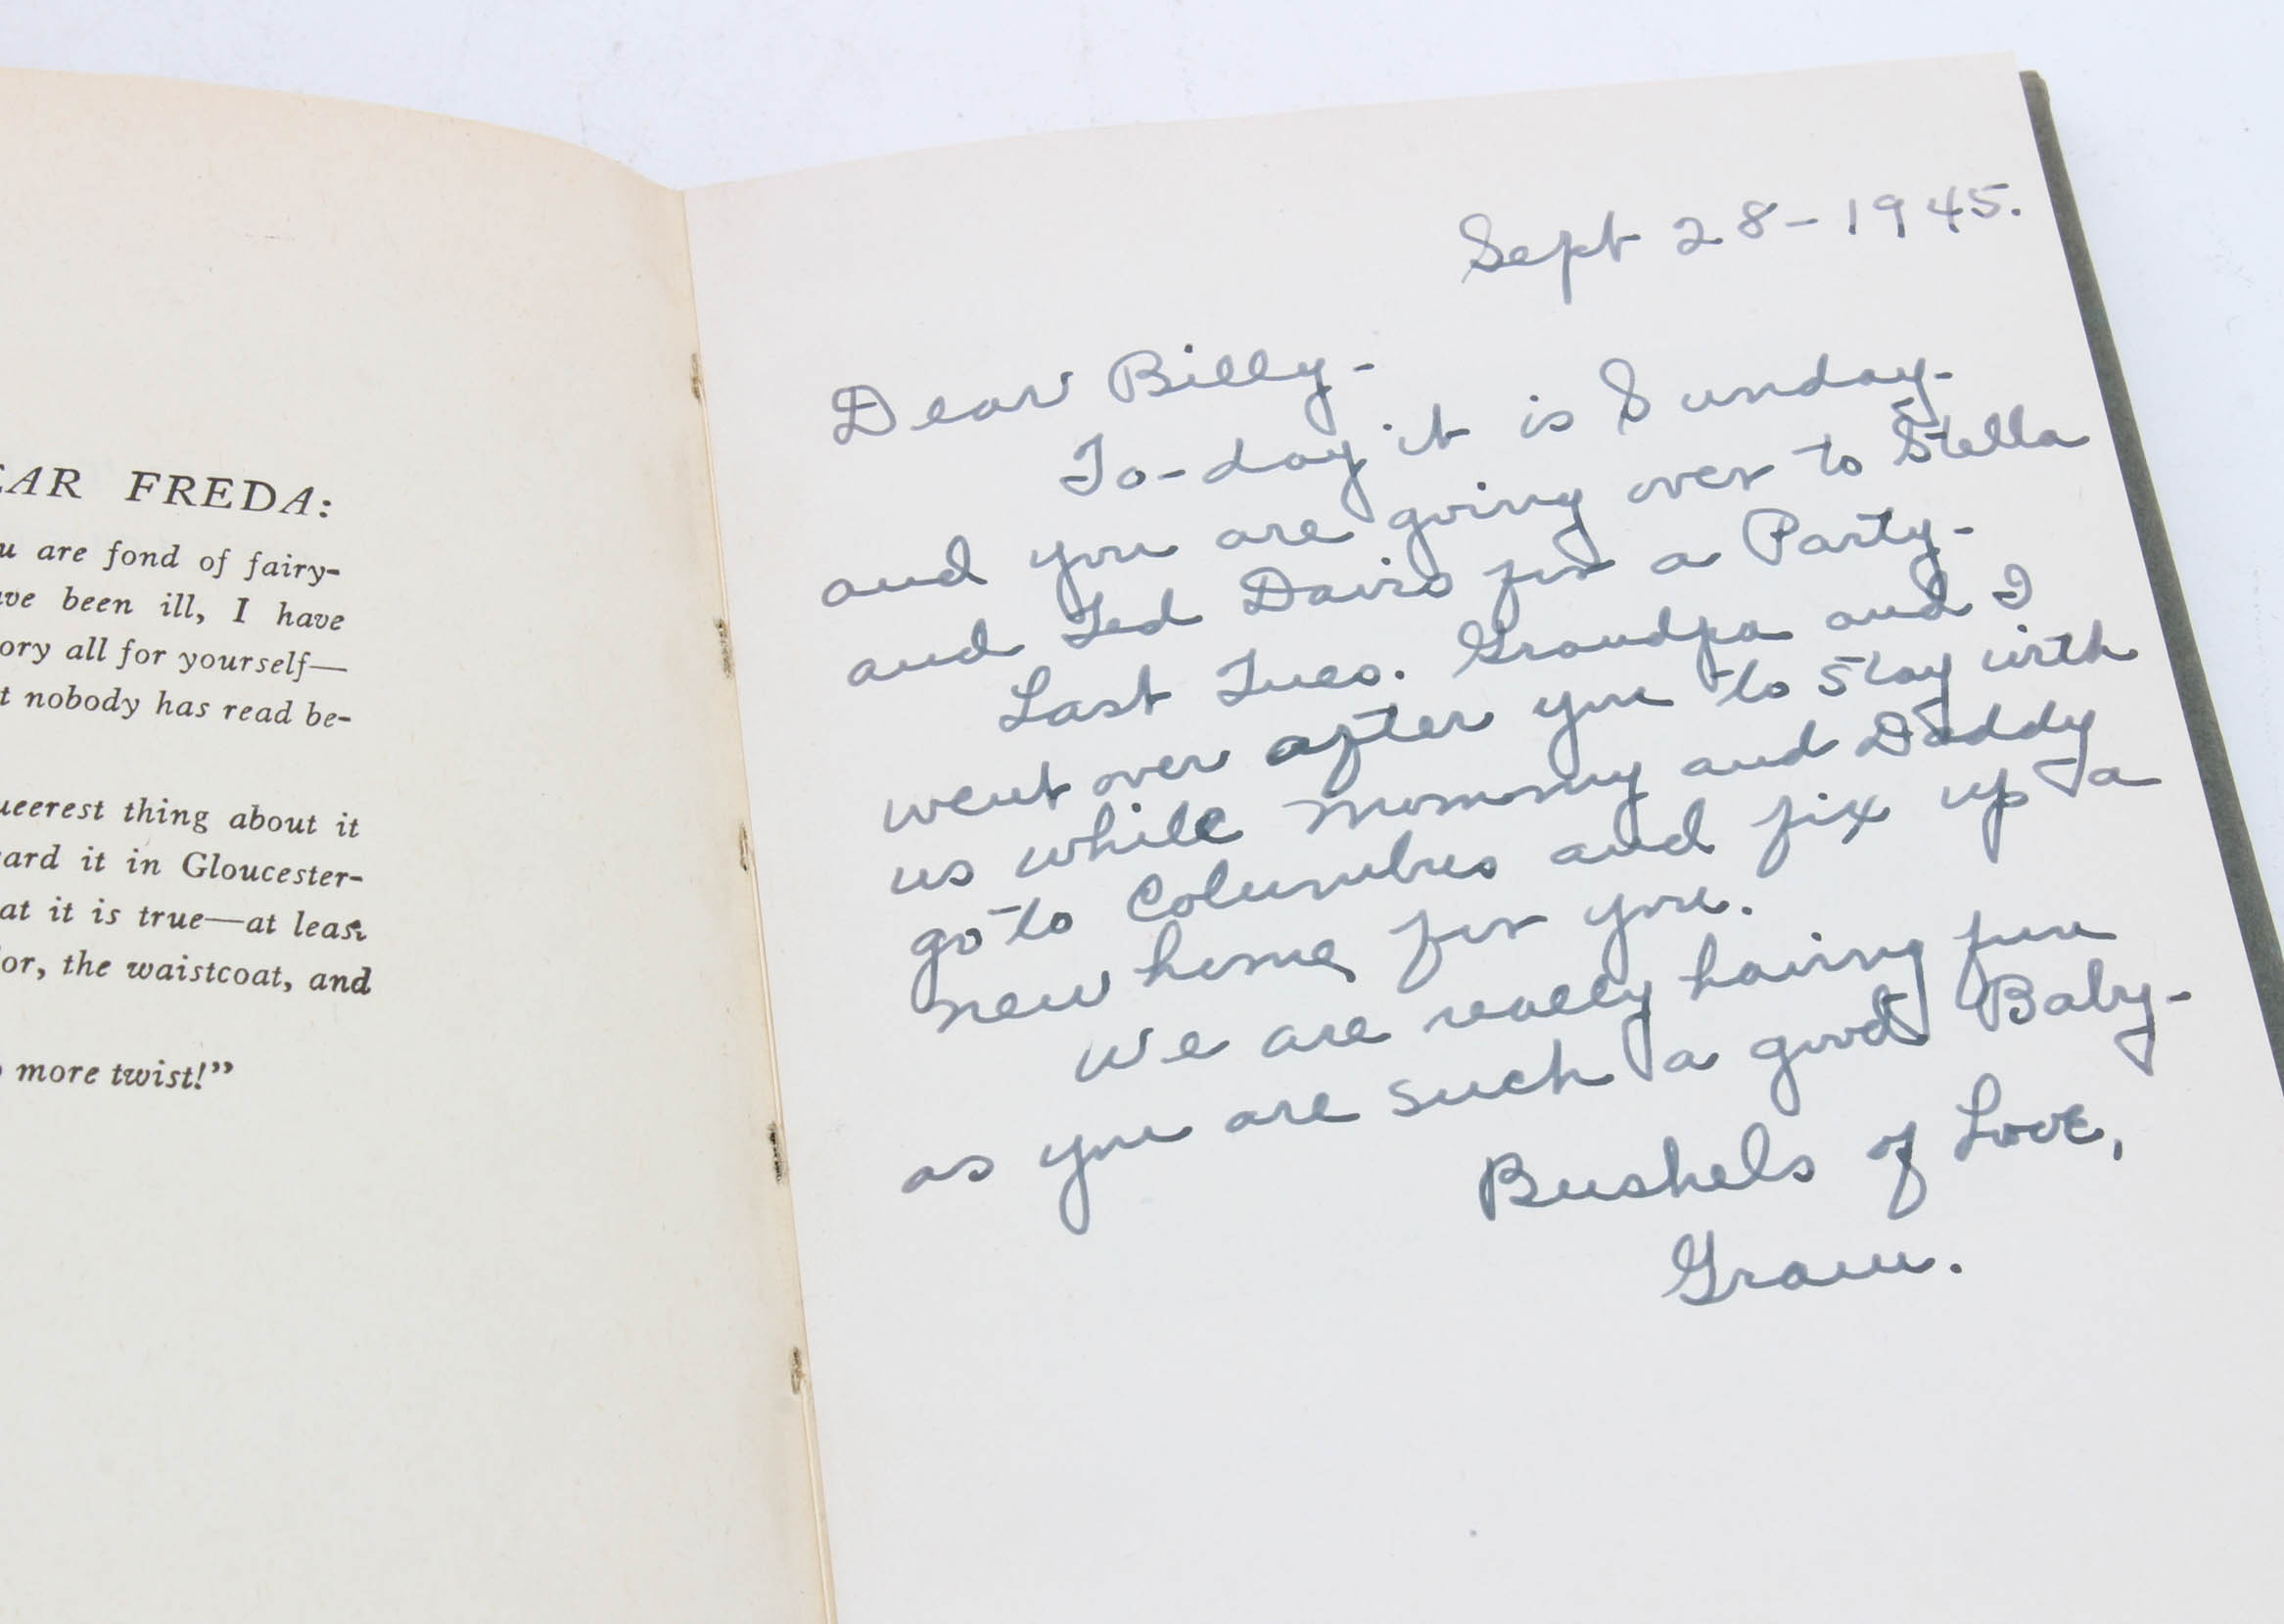 EAR FREDA:
u are fond of fairy-
ve been ill, I have
ory all for yourself—
t nobody has read be-
ueerest thing about it
ard it in Gloucester-
at it is true—at least
or, the waistcoat, and
more twist!”
Sept 28-1945.
Dear Billy-
To-day it is Sunday-
and you are going over to Stella
and Ted Davis for a Party-
Last Tues. Grandpa and I
went over after you to stay with
us while mommy and Daddy
go to Columbus and fix up a
new home for you.
We are really having fun
as you are such a good Baby-
Bushels of Love,
Gram.